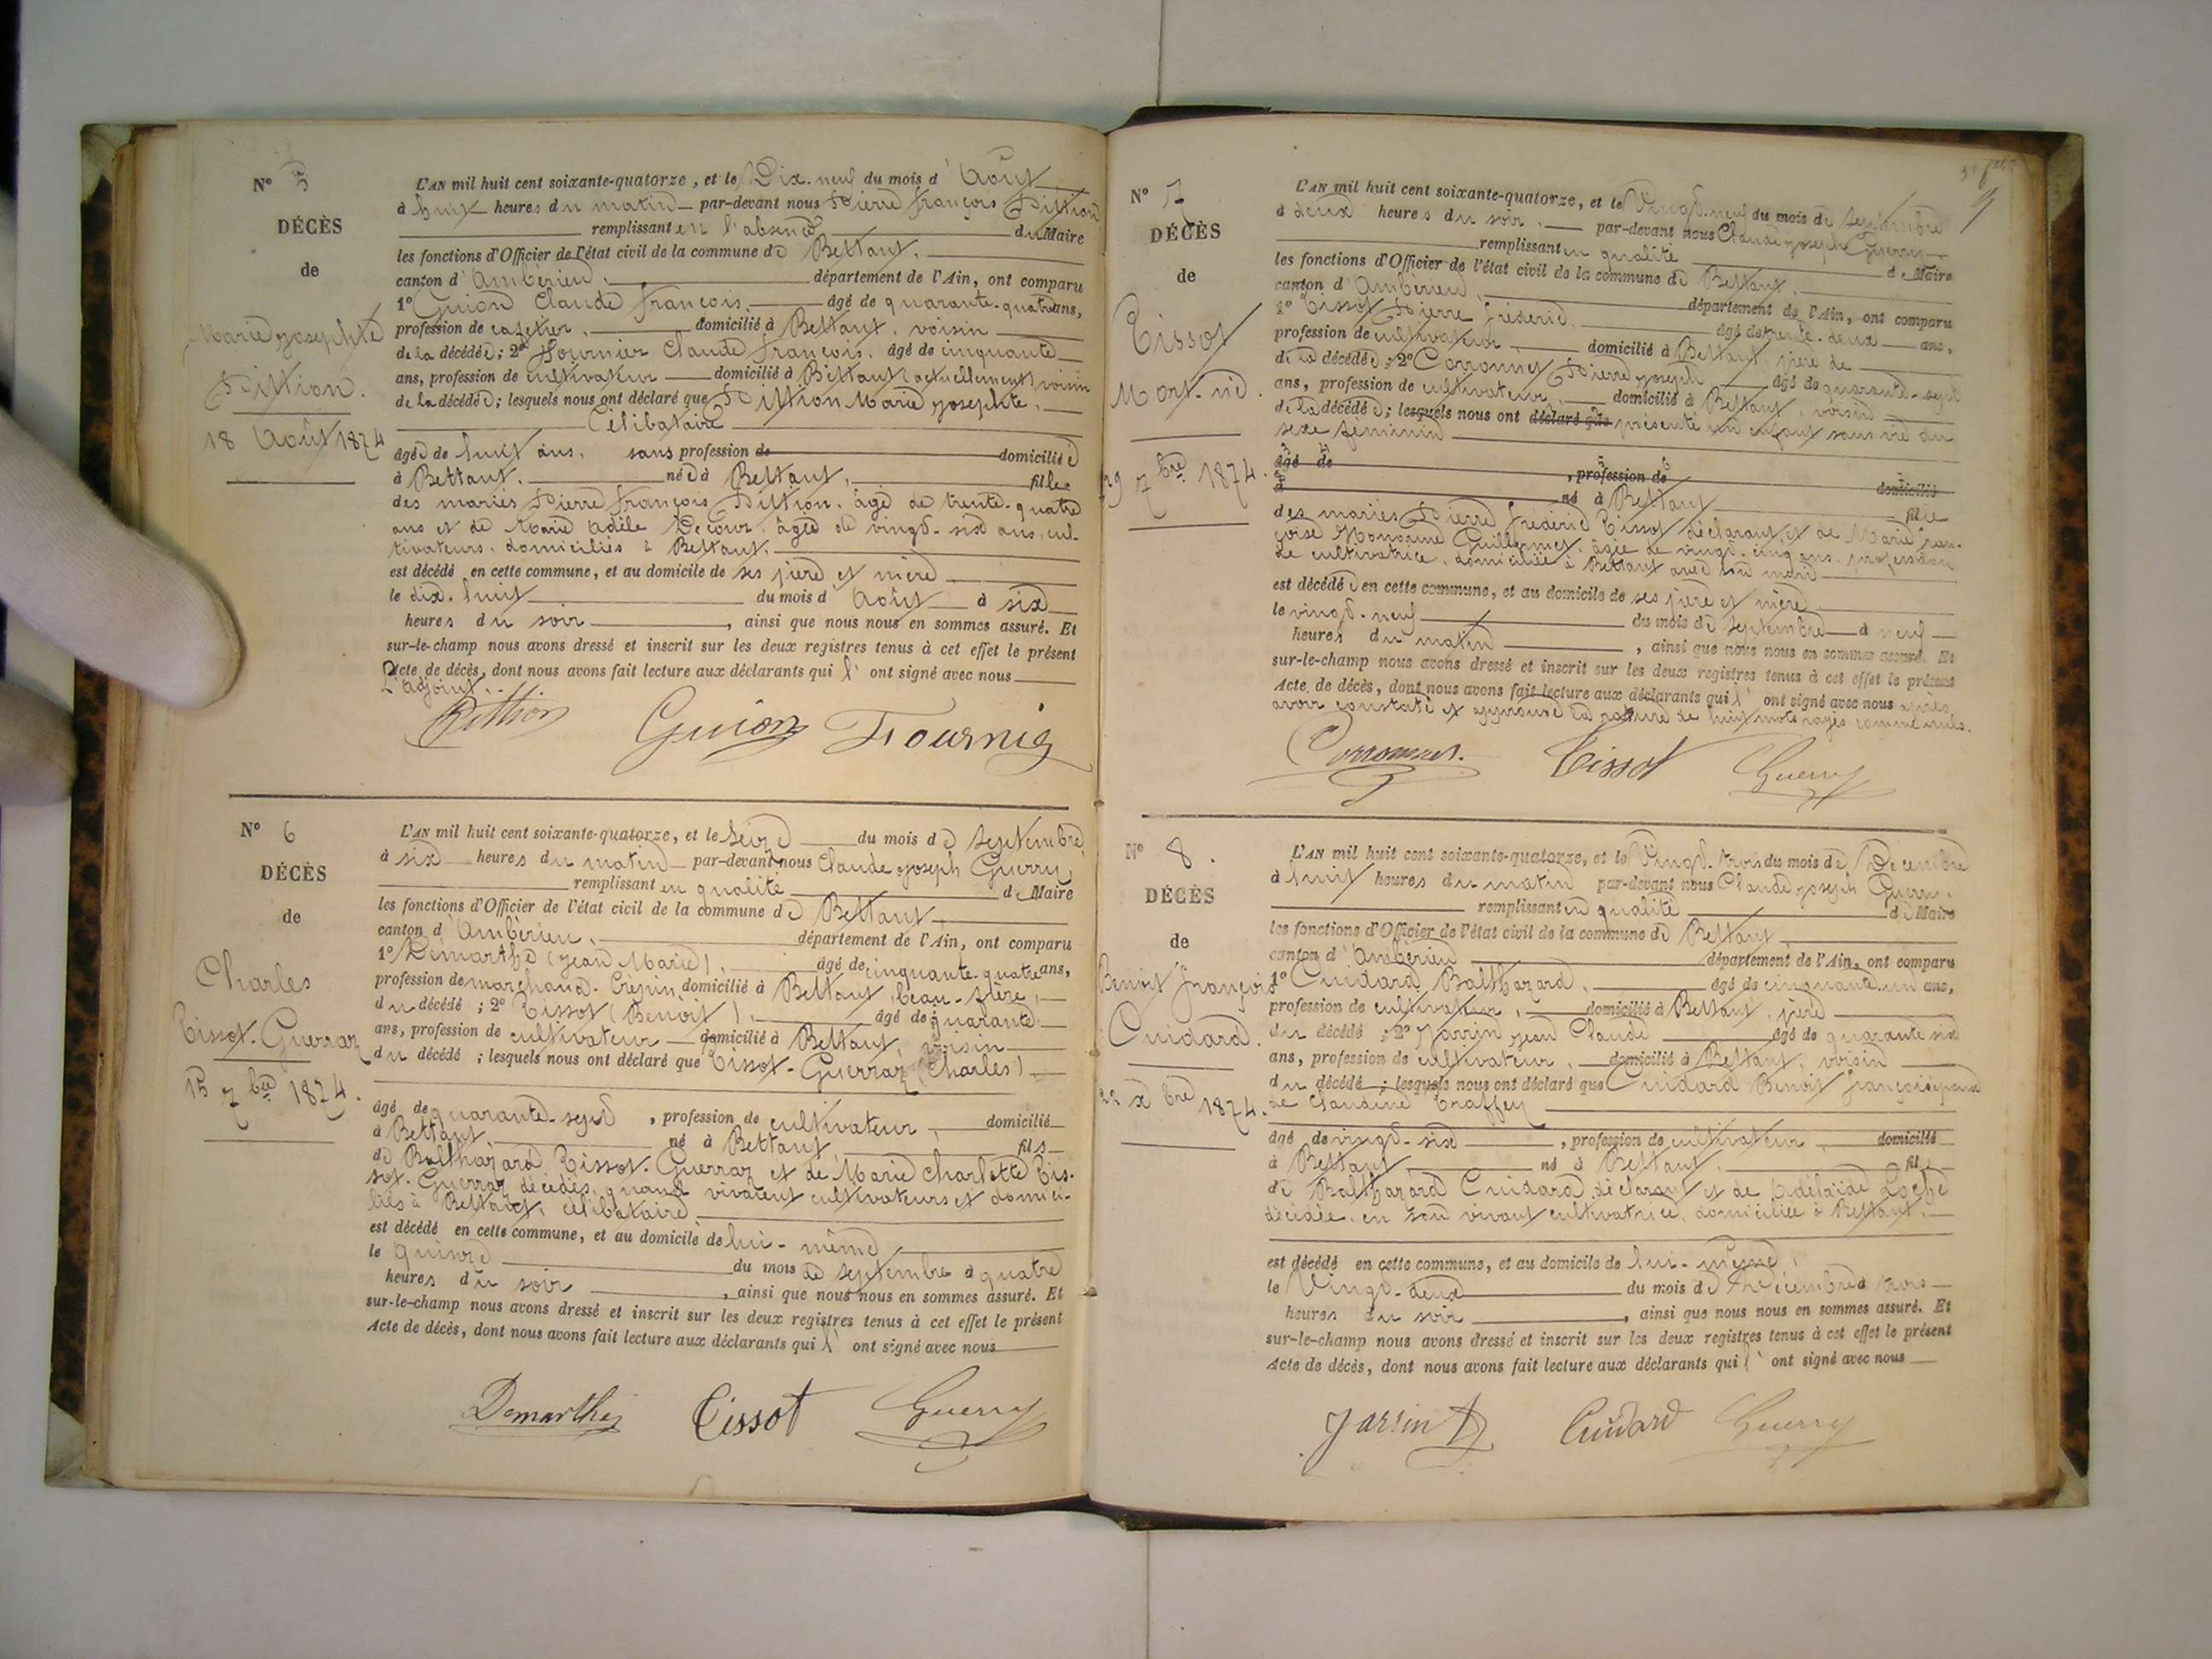 N° 5
DÉCÈS
de
Marie Josephte
Pittion.
18 Août 1874
L'AN mil huit cent soixante-quatorze, et le Dix-neuf du mois d'Août
à huit heures du matin par-devant nous Pierre François Pittion
remplissant en l'absence du Maire
les fonctions d'Officier de l'état civil de la commune de Bettant,
canton d'Ambérieu, département de l'Ain, ont comparu
1° Guion Claude François, âgé de quarante-quatre ans,
profession de cafetier, domicilié à Bettant, voisin
de la décédée; 2° Fournier Claude François, âgé de cinquante
ans, profession de cultivateur domicilié à Bettant (actuellement) voisin
de la décédée; lesquels nous ont déclaré que Pittion Marie Josephte,
Célibataire
âgée de huit ans, sans profession de domiciliée
à Bettant, née à Bettant, fille
des mariés Pierre François Pittion, âgé de trente-quatre
ans et de Marie Adèle Decour, âgée de vingt-six ans, cul-
tivateurs, domiciliés à Bettant,
est décédé en cette commune, et au domicile de ses père et mère
le dix-huit du mois d'Août à six
heures du soir, ainsi que nous nous en sommes assuré. Et
sur-le-champ nous avons dressé et inscrit sur les deux registres tenus à cet effet le présent
Acte de décès, dont nous avons fait lecture aux déclarants qui l'ont signé avec nous
L'adjoint.
Pittion Guion Fournier
N° 6
DÉCÈS
de
Charles
Tissot-Guerraz
15 7bre 1874.
L'AN mil huit cent soixante-quatorze, et le Seize du mois de Septembre
à six heures du matin par-devant nous Claude Joseph Guerry
remplissant en qualité de Maire
les fonctions d'Officier de l'état civil de la commune de Bettant,
canton d'Ambérieu, département de l'Ain, ont comparu
1° Démarthe (Jean Marie), âgé de cinquante-quatre ans,
profession de marchand-Crépin, domicilié à Bettant, beau-frère,
du décédé; 2° Tissot (Benoît), âgé de quarante
ans, profession de cultivateur domicilié à Bettant, voisin
du décédé; lesquels nous ont déclaré que Tissot-Guerraz (Charles)
âgé de quarante-sept, profession de cultivateur, domicilié
à Bettant, né à Bettant, fils
de Balthazard Tissot-Guerraz et de Marie Charlotte Tis-
sot-Guerraz décédés, quand vivaient cultivateurs et domici-
liés à Bettant, célibataire
est décédé en cette commune, et au domicile de lui-même
le quinze du mois de Septembre à quatre
heures du soir, ainsi que nous nous en sommes assuré. Et
sur-le-champ nous avons dressé et inscrit sur les deux registres tenus à cet effet le présent
Acte de décès, dont nous avons fait lecture aux déclarants qui l'ont signé avec nous
Demarthe Tissot Guerry
N° 7
DÉCÈS
de
Tissot
Mort-né.
29 7bre 1874.
L'AN mil huit cent soixante-quatorze, et le Vingt-neuf du mois de Septembre
à deux heures du soir, par-devant nous Claude Joseph Guerry
remplissant en qualité de Maire
les fonctions d'Officier de l'état civil de la commune de Bettant,
canton d'Ambérieu, département de l'Ain, ont comparu
1° Tissot Pierre Fréderic, âgé de trente-deux ans,
profession de cultivateur, domicilié à Bettant, père de
de la décédée; 2° Corronnet Pierre Joseph, âgé de quarante-sept
ans, profession de cultivateur, domicilié à Bettant, voisin
de la décédée; lesquels nous ont déclaré que présenté un enfant sans vie du
sexe féminin
âgé de, profession de domicilié
à né à Bettant fille
des mariés Pierre Fréderic Tissot déclarant, et de Marie Fran-
çoise Guillermet, âgée de vingt-cinq ans, profession
de cultivatrice, domiciliée à Bettant avec son mari
est décédée en cette commune, et au domicile de ses père et mère
le vingt-neuf du mois de Septembre à neuf
heures du matin, ainsi que nous nous en sommes assuré. Et
sur-le-champ nous avons dressé et inscrit sur les deux registres tenus à cet effet le présent
Acte de décès, dont nous avons fait lecture aux déclarants qui l'ont signé avec nous après
avoir constaté et approuvé la rature de huit mots rayés comme nuls.
Corronnet. Tissot Guerry
N° 8.
DÉCÈS
de
Benoît François
Cuidard.
22 xbre 1874.
L'AN mil huit cent soixante-quatorze, et le Vingt-trois du mois de Décembre
à huit heures du matin par-devant nous Claude Joseph Guerry,
remplissant en qualité de Maire
les fonctions d'Officier de l'état civil de la commune de Bettant,
canton d'Ambérieu département de l'Ain, ont comparu
1° Cuidard Balthazard, âgé de cinquante-un ans,
profession de cultivateur, domicilié à Bettant, père
du décédé; 2° Jarrin Jean Claude âgé de quarante six
ans, profession de cultivateur, domicilié à Bettant, voisin
du décédé; lesquels nous ont déclaré que Cuidard Benoît François époux
de Claudine Traffey
âgé de vingt-six, profession de cultivateur, domicilié
à Bettant, né à Bettant, fils
de Balthazard Cuidard, déclarant et de Adélaïde
décédée, en son vivant cultivatrice, domiciliée à Bettant,
est décédé en cette commune, et au domicile de lui-même,
le Vingt-deux du mois de Décembre à trois
heures du soir, ainsi que nous nous en sommes assuré. Et
sur-le-champ nous avons dressé et inscrit sur les deux registres tenus à cet effet le présent
Acte de décès, dont nous avons fait lecture aux déclarants qui l'ont signé avec nous
Jarrin Cuidard Guerry